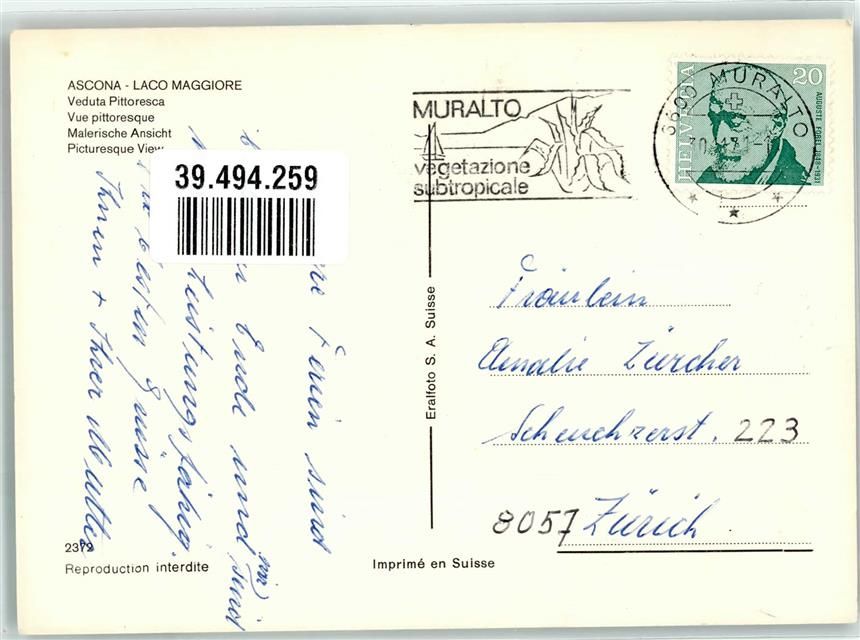 ASCONA - LACO MAGGIORE
Veduta Pittoresca
Vue pittoresque
Malerische Ansicht
Picturesque View
39.494.259
MURALTO
vegetazione
subtropicale
6600 MURALTO
HELVETIA
20
AUGUSTE FOREL 1848-1931
Ferien sind
Ende und sind
wir
leistungsfähig.
besten Grüsse
Ihnen + Ihrer Mutter
Eralfoto S. A. Suisse
Fräulein
Amalie Zürcher
Scheuchzerst. 223
8057 Zürich
2372
Reproduction interdite
Imprimé en Suisse